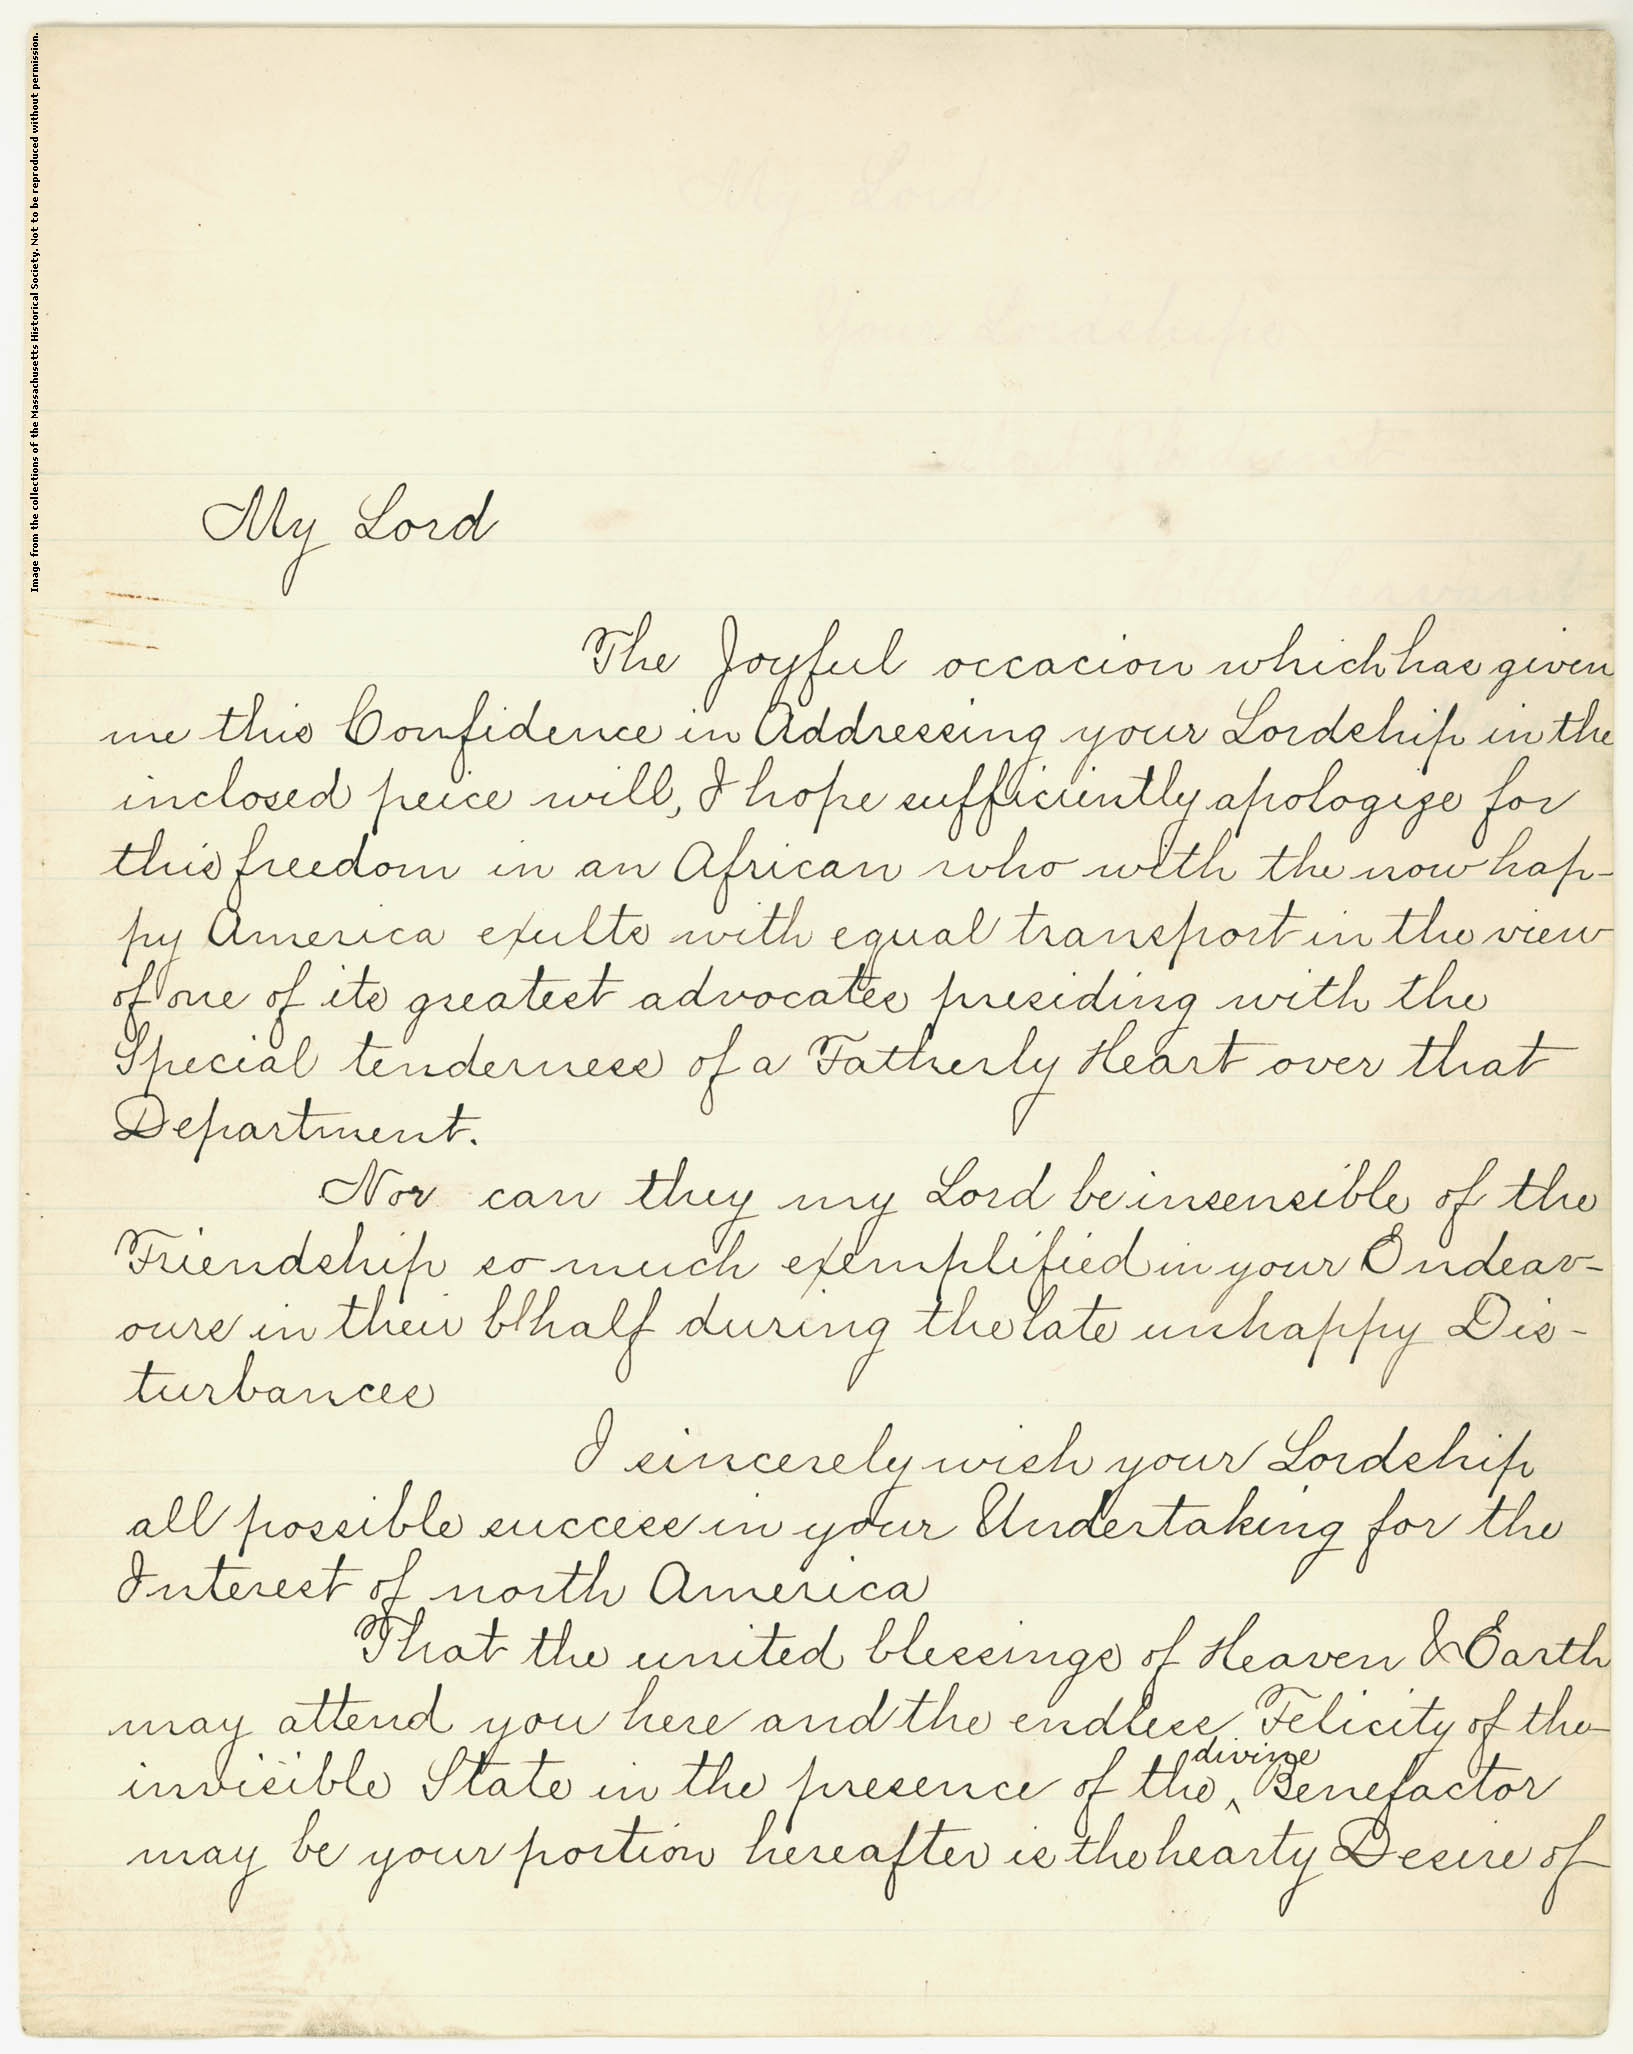 Image from the collections of the Massachusetts Historical Society. Not to be reproduced without permission.
My Lord
The Joyful occacion which has given
me this Confidence in Addressing your Lordship in the
inclosed peice will, I hope sufficiently apologize for
this freedom in an African who with the now hap-
py America exults with equal transport in the view
of one of its greatest advocates presiding with the
Special tenderness of a Fatherly Heart over that
Department.
Nor can they my Lord be insensible of the
Friendship so much exemplified in your Endeav-
ours in their behalf during the late unhappy Dis-
turbances
I sincerely wish your Lordship
all possible success in your Undertaking for the
Interest of north America
That the united blessings of Heaven & Earth
may attend you here and the endless Felicity of the
divine
invisible State in the presence of the ‸ Benefactor
may be your portion hereafter is the hearty Desire of